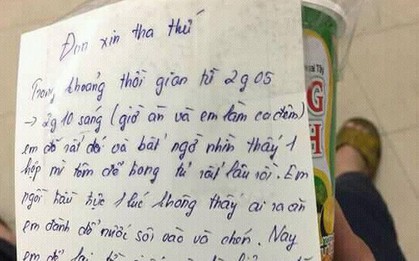 Đơn xin tha thứ
Trong khoảng thời gian từ 2g05
→ 2g10 sáng (giờ ăn và em làm ca đêm)
em đã rất đói và bất ngờ nhìn thấy 1
hộp mì tôm để trong tủ rất lâu rồi. Em
ngồi hầu hực 1 lúc không thấy ai ra căn
em đành đổ nước sôi vào và chén. Nay
em để lại